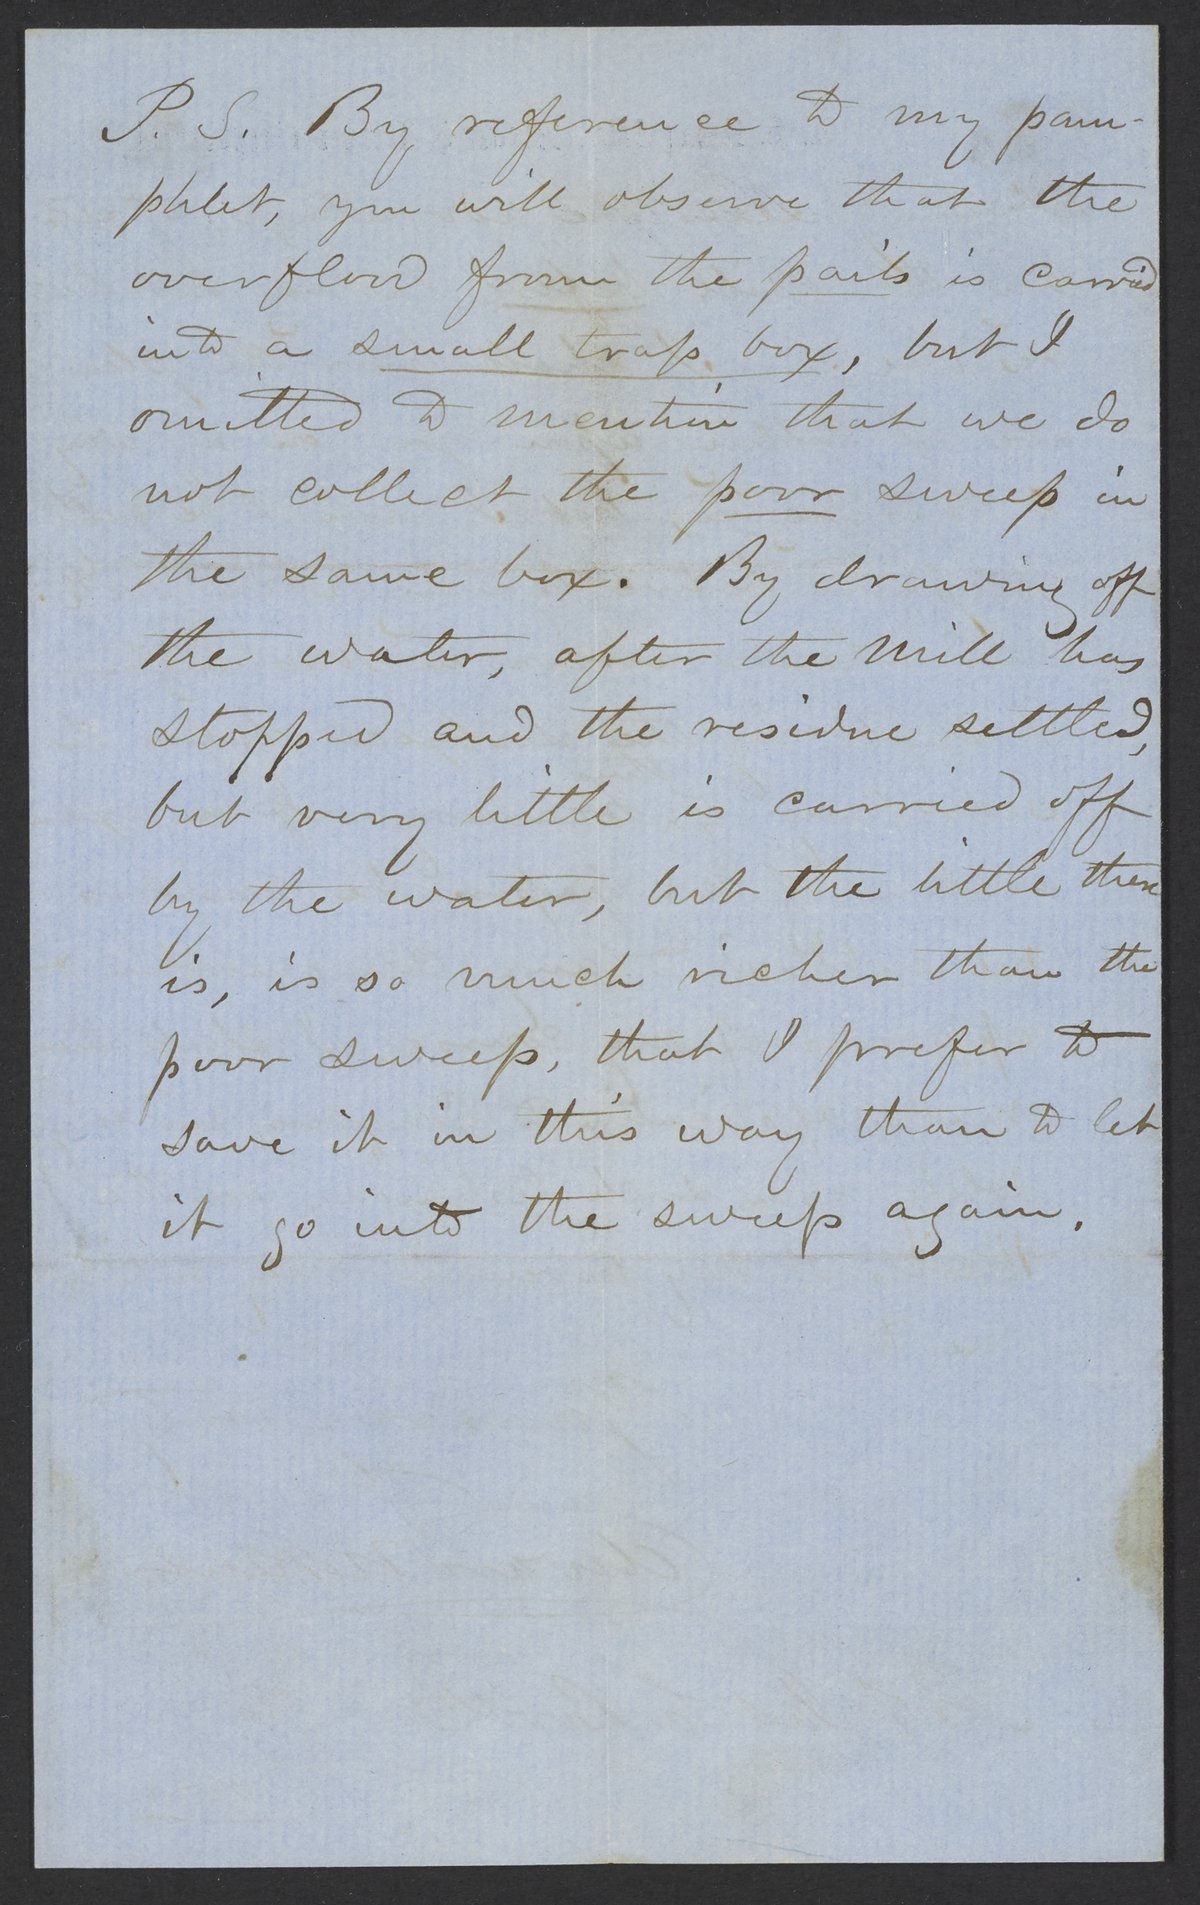 P. S. By reference to my pam-
phlet, you will observe that the
overflow from the pails is carried
into a small trap box, but I
omitted to mention that we do
not collect the poor sweep in
the same box. By drawing off
the water, after the mill has
stopped and the residue settled,
but very little is carried off
by the water, but the little there
is, is so much richer than the
poor sweep, that I prefer to
save it in this way than to let
it go into the sweep again.